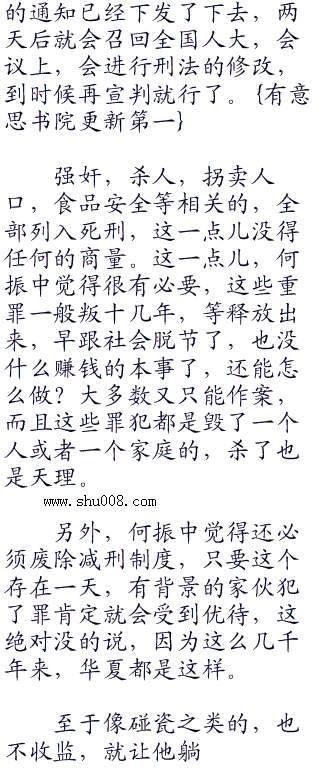 的通知已经下发了下去，两
天后就会召回全国人大，会
议上，会进行刑法的修改，
到时候再宣判就行了。{有意
思书院更新第一}
强奸，杀人，拐卖人
口，食品安全等相关的，全
部列入死刑，这一点儿没得
任何的商量。这一点儿，何
振中觉得很有必要，这些重
罪一般叛十几年，等释放出
来，早跟社会脱节了，也没
什么赚钱的本事了，还能怎
么做？大多数又只能作案，
而且这些罪犯都是毁了一个
人或者一个家庭的，杀了也
是天理。
www.shu008.com
另外，何振中觉得还必
须废除减刑制度，只要这个
存在一天，有背景的家伙犯
了罪肯定就会受到优待，这
绝对没的说，因为这么几千
年来，华夏都是这样。
至于像碰瓷之类的，也
不收监，就让他躺